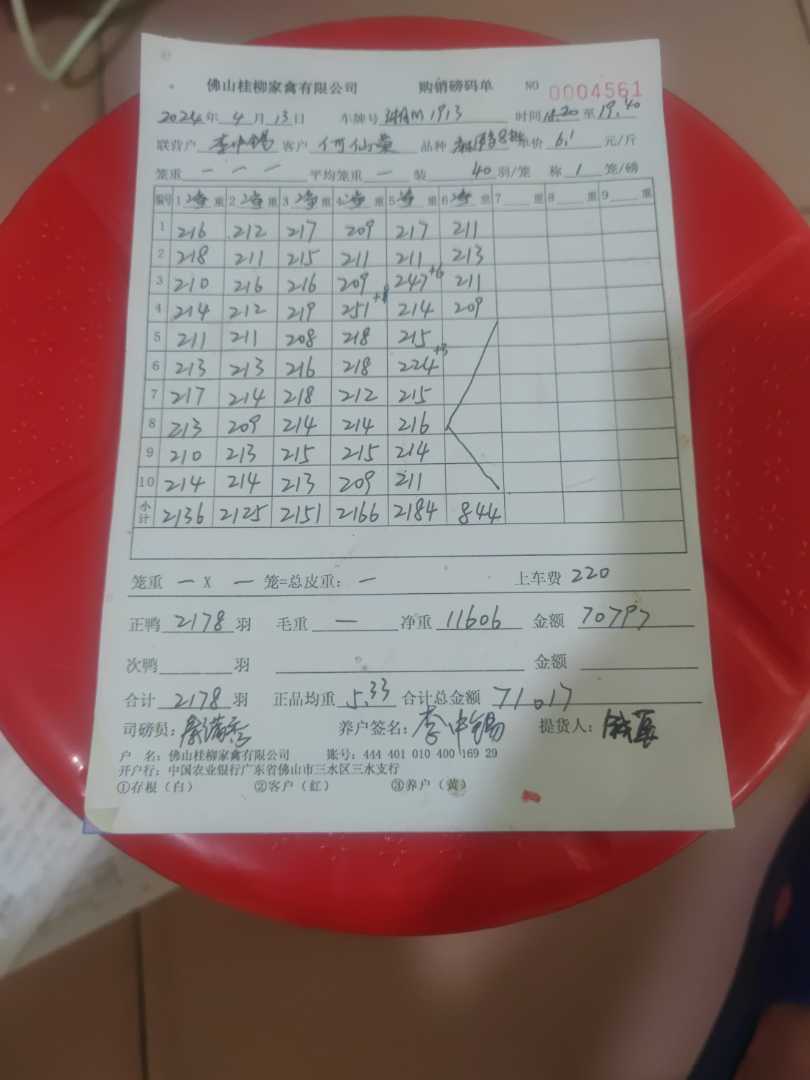 佛山桂柳家禽有限公司 购销磅码单 NO 0004561
2024年 4 月 13 日 车牌号 1913 时间 18:20 至 19:40
联营户 李中锡 客户 何仙 品种 单价 6.1 元/斤
笼重 — — — 平均笼重 — 装 40 羽/笼 称 1 笼/磅
编号 1 重 2 重 3 重 4 重 5 重 6 重 7 重 8 重 9 重
1 216 212 217 209 217 211
2 218 211 215 211 211 213
3 210 216 216 209 247+6 211
4 214 212 219 251+8 214 209
5 211 211 208 218 215
6 213 213 216 218 224+3
7 217 214 218 212 215
8 213 209 214 214 216
9 210 213 215 215 214
10 214 214 213 209 211
小计 2136 2125 2151 2166 2184 844
笼重 — X — 笼=总皮重: — 上车费 220
正鸭 2178 羽 毛重 — 净重 11606 金额 70797
次鸭 羽 金额
合计 2178 羽 正品均重 5.33 合计总金额 71017
司磅员: 养户签名: 李中锡 提货人:
户 名: 佛山桂柳家禽有限公司 账号: 444 401 010 400 169 29
开户行: 中国农业银行广东省佛山市三水区三水支行
①存根(白) ②客户(红) ③养户(黄)